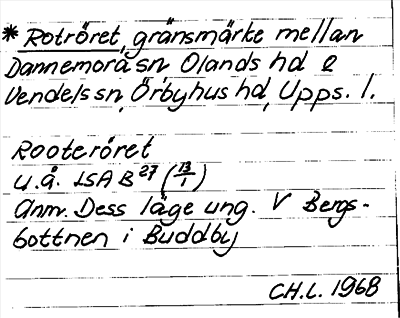 * Rotröret, gränsmärke mellan
Dannemora sn Olands hd &
Vendels sn, Örbyhus hd, Upps. l.
Rooteröret
u.å. LSA B 27 (13/1)
Anm. Dess läge ung. V Bergs-
bottnen i Buddby
CH.L. 1968